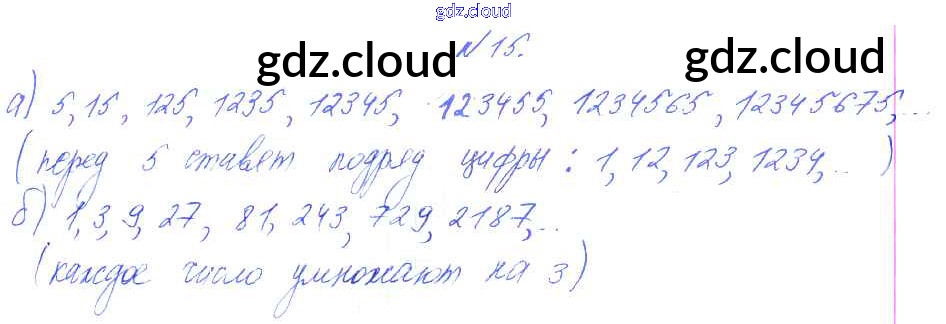 gdz.cloud
№ 15.
gdz.cloud gdz.cloud
а) 5, 15, 125, 1235, 12345, 123455, 1234565, 12345675, ...
(перед 5 ставят подряд цифры: 1, 12, 123, 1234, ...)
б) 1, 3, 9, 27, 81, 243, 729, 2187, ...
(каждое число умножают на 3)